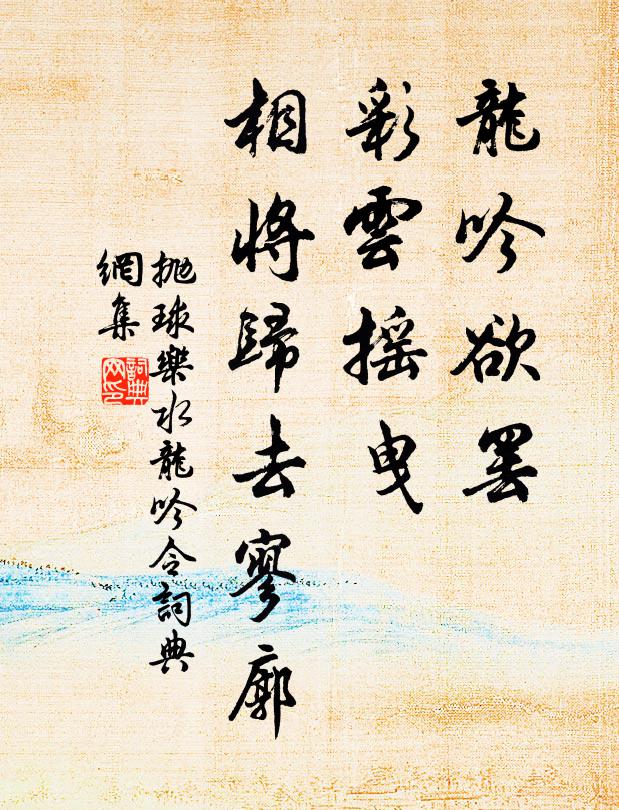 龍吟欲罷
彩雲搖曳
相將歸去寥廓
拋球樂水龍吟令詞典
網集
詞典